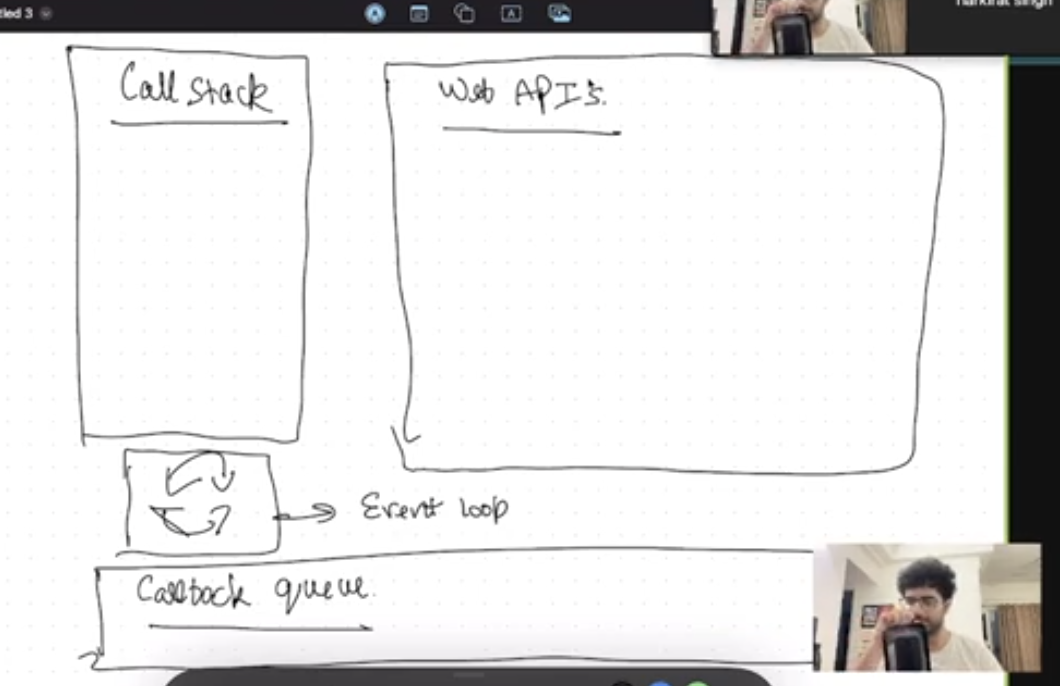 tled 3
harkirat singh
Call Stack
Web APIs.
Event loop
Callback queue.